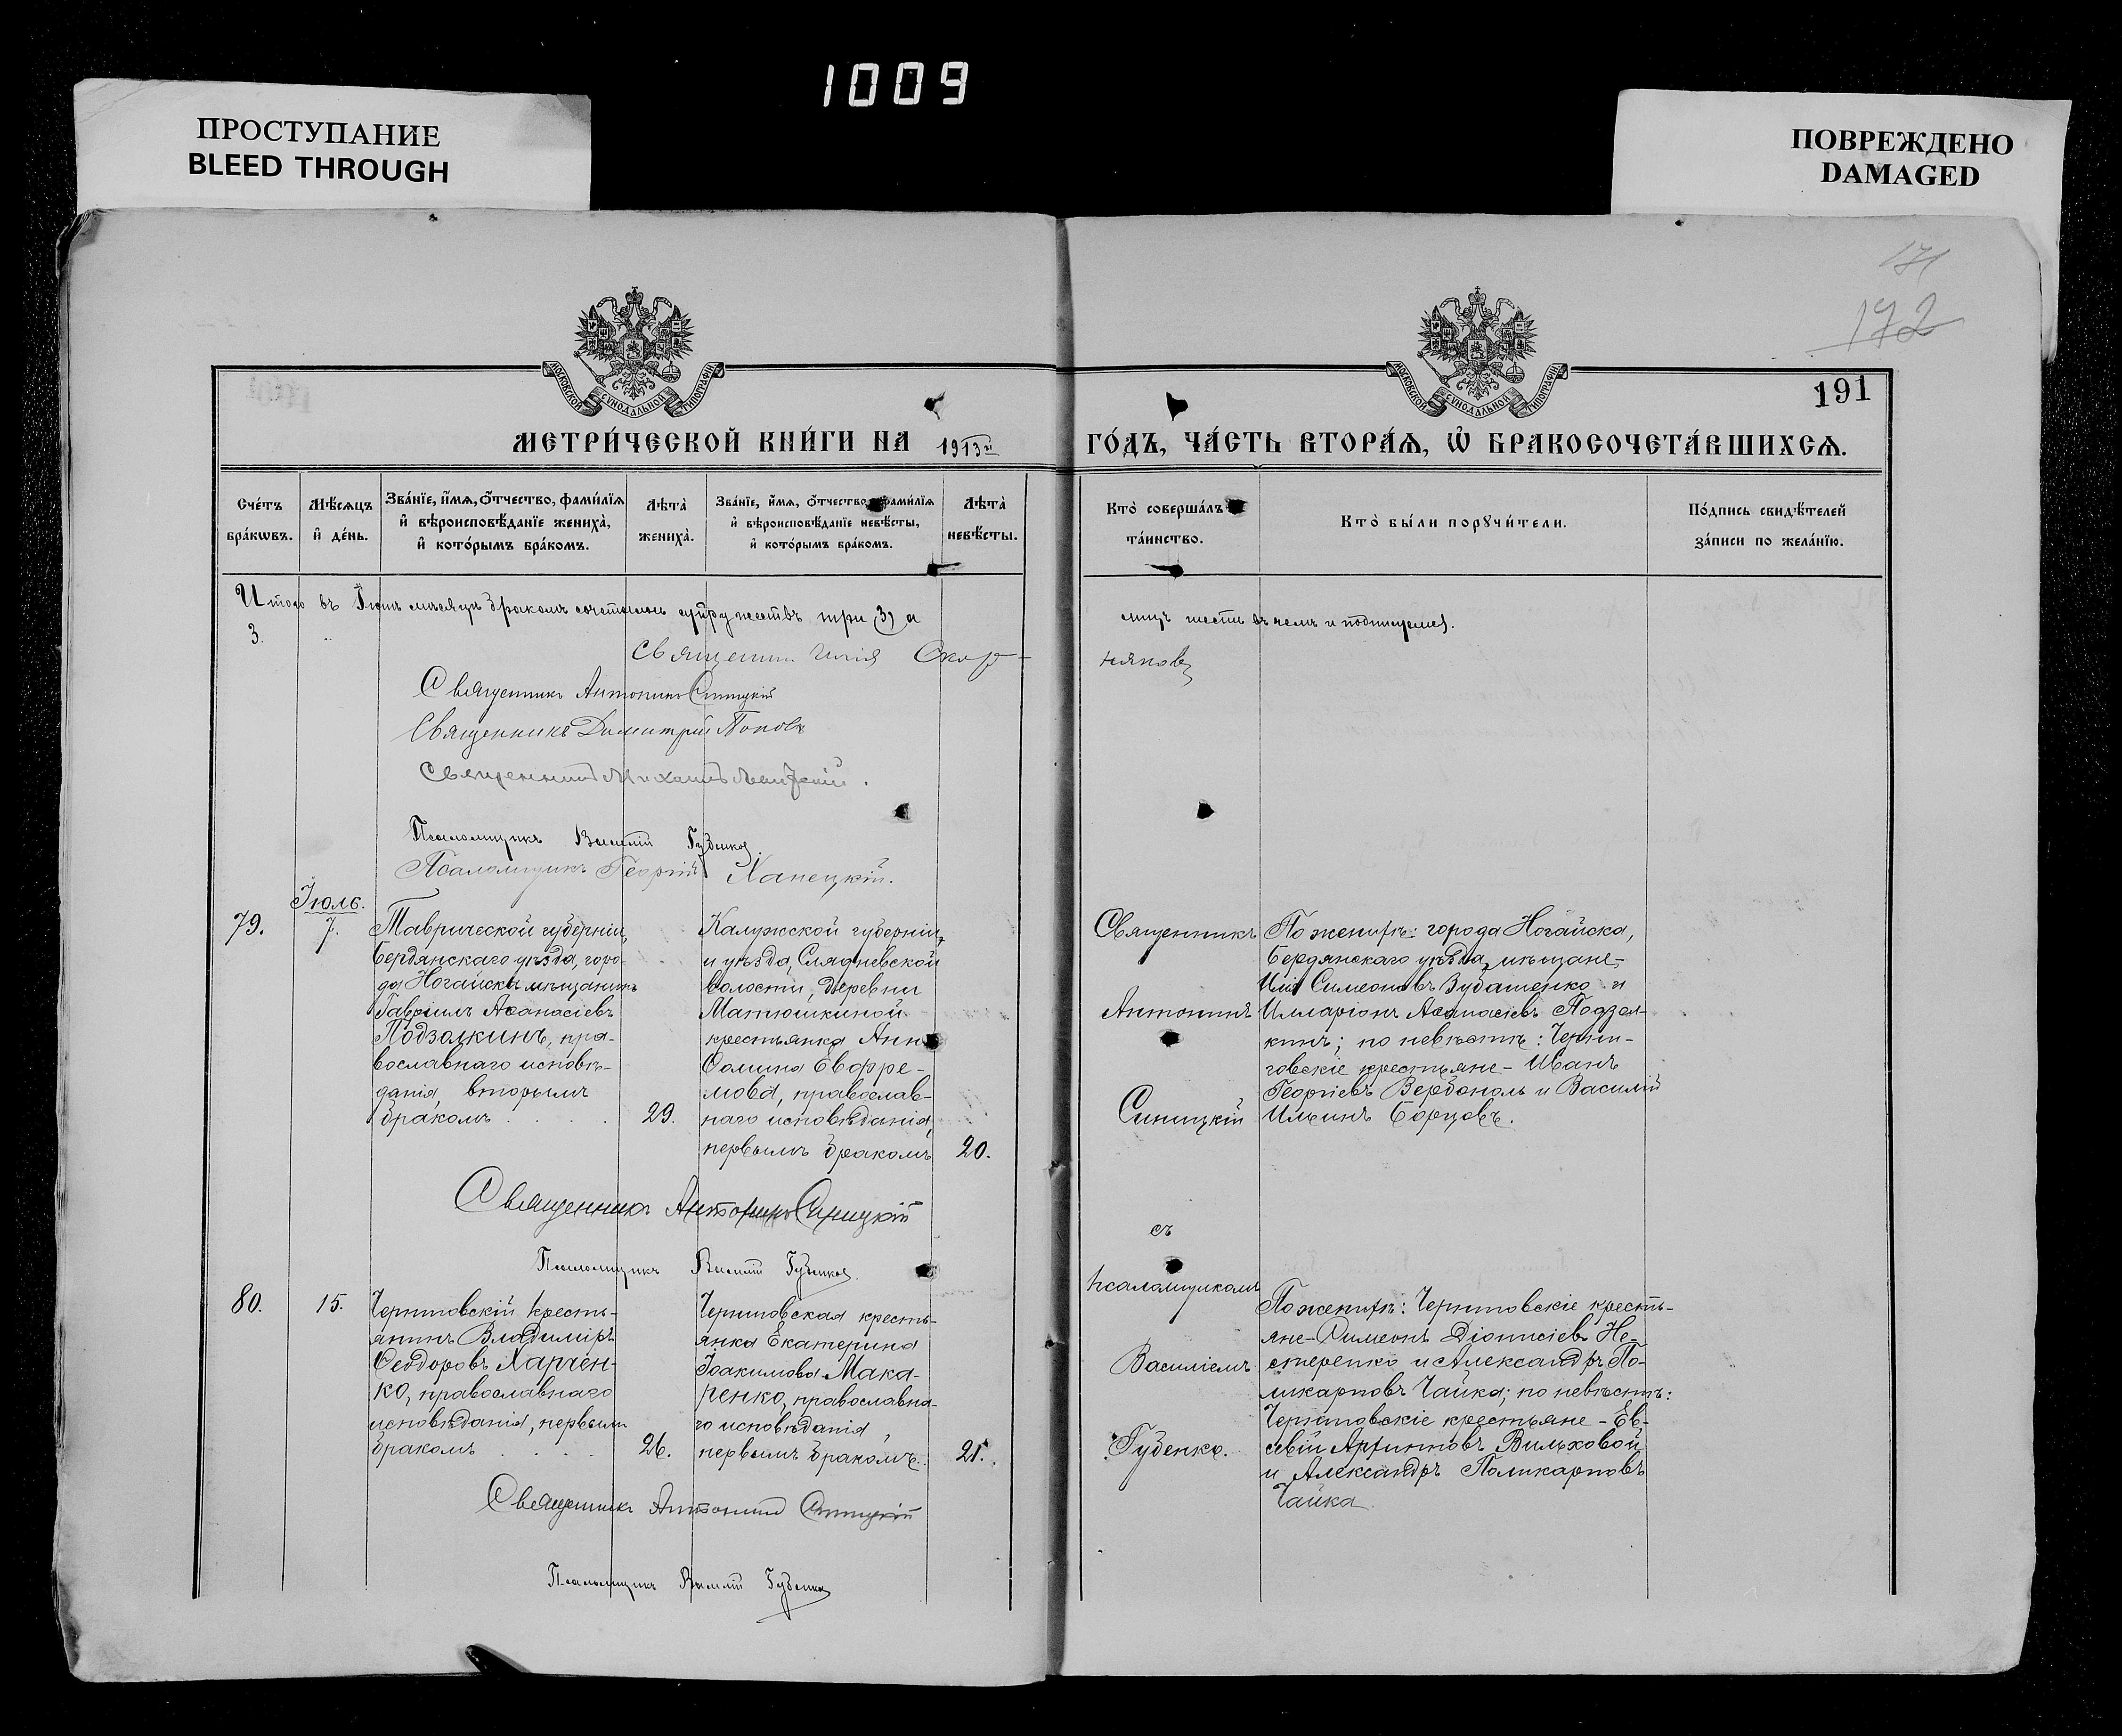 1009
ПРОСТУПАНИЕ
BLEED THROUGH
ПОВРЕЖДЕНО
DAMAGED
172
191
МОСКОВСКОЙ СѴНОДАЛЬНОЙ ТИПОГРАФІИ
МОСКОВСКОЙ СѴНОДАЛЬНОЙ ТИПОГРАФІИ
МЕТРИ́ЧЕСКОЙ КНИ́ГИ НА 1913й
ГО́ДЪ, ЧА́СТЬ ВТОРА́Ѧ, Ѡ҆ БРАКОСОЧЕТА́ВШИХСѦ.
Сче́тъ
бра́кѡвъ.
Мѣ́сѧцъ
и҆ де́нь.
Зва́нїе, и҆́мѧ, ѻ҆́тчество, фами́лїѧ
и҆ вѣроисповѣ́данїе жениха̀,
и҆ кото́рымъ бра́комъ.
Лѣта̀
жениха̀.
Зва́нїе, и҆́мѧ, ѻ҆́тчество, фами́лїѧ
и҆ вѣроисповѣ́данїе невѣ́сты,
и҆ кото́рымъ бра́комъ.
Лѣта̀
невѣ́сты.
Кто̀ соверша́лъ
та́инство.
Кто̀ бы́ли порꙋчи́тели.
По́дпись свидѣ́телей
за́писи по жела́нїю.
Итого въ Іюнѣ мѣсяцѣ бракомъ сочеталось супружествъ три (3) а
лицъ шесть въ чемъ и подписуемся.
3.
Священникъ Илія Скор-
няковъ
Священникъ Антонинъ Синицкій
Священникъ Димитрій Поповъ
Священникъ Михаилъ
Псаломщикъ Василій Губенко.
Псаломщикъ Георгій Ханецкій.
Іюль.
79.
7.
Таврической губерніи,
Бердянскаго уѣзда, горо-
да Ногайска мѣщанинъ
Гавріилъ Аѳанасіевъ
Подзолкинъ, пра-
вославнаго исповѣ-
данія, вторымъ
бракомъ . . . .
29.
Калужской губерніи,
и уѣзда, Слядневской
волости, деревни
Матюшкиной
крестьянка Анна
Ѳомина Евфре-
мова, православ-
наго исповѣданія,
первымъ бракомъ
20.
Священникъ
Антонинъ
Синицкій
съ
псаломщикомъ
Василіемъ
Губенко.
По женихѣ: города Ногайска,
Бердянскаго уѣзда, мѣщане-
Илія Симеоновъ Зубашенко и
Илларіонъ Аѳанасіевъ Подзол-
кинъ; по невѣстѣ: Черни-
говскіе крестьяне - Иванъ
Георгіевъ Вербополь и Василій
Ильинъ Борцовъ.
Священникъ Антонинъ Синицкій
Псаломщикъ Василій Губенко.
80.
15.
Черниговскій кресть-
янинъ Владиміръ
Ѳеодоровъ Харчен-
ко, православнаго
исповѣданія, первымъ
бракомъ . . . .
26.
Черниговская кресть-
янка Екатерина
Іоакимова Мака-
ренко, православна-
го исповѣданія,
первымъ бракомъ.
21.
По женихѣ: Черниговскіе кресть-
яне - Симеонъ Діонисіевъ Не-
стеренко и Александръ По-
ликарповъ Чайка; по невѣстѣ:
Черниговскіе крестьяне - Ев-
севій Архиповъ Вильховой
и Александръ Поликарповъ
Чайка.
Священникъ Антонинъ Синицкій
Псаломщикъ Василій Губенко